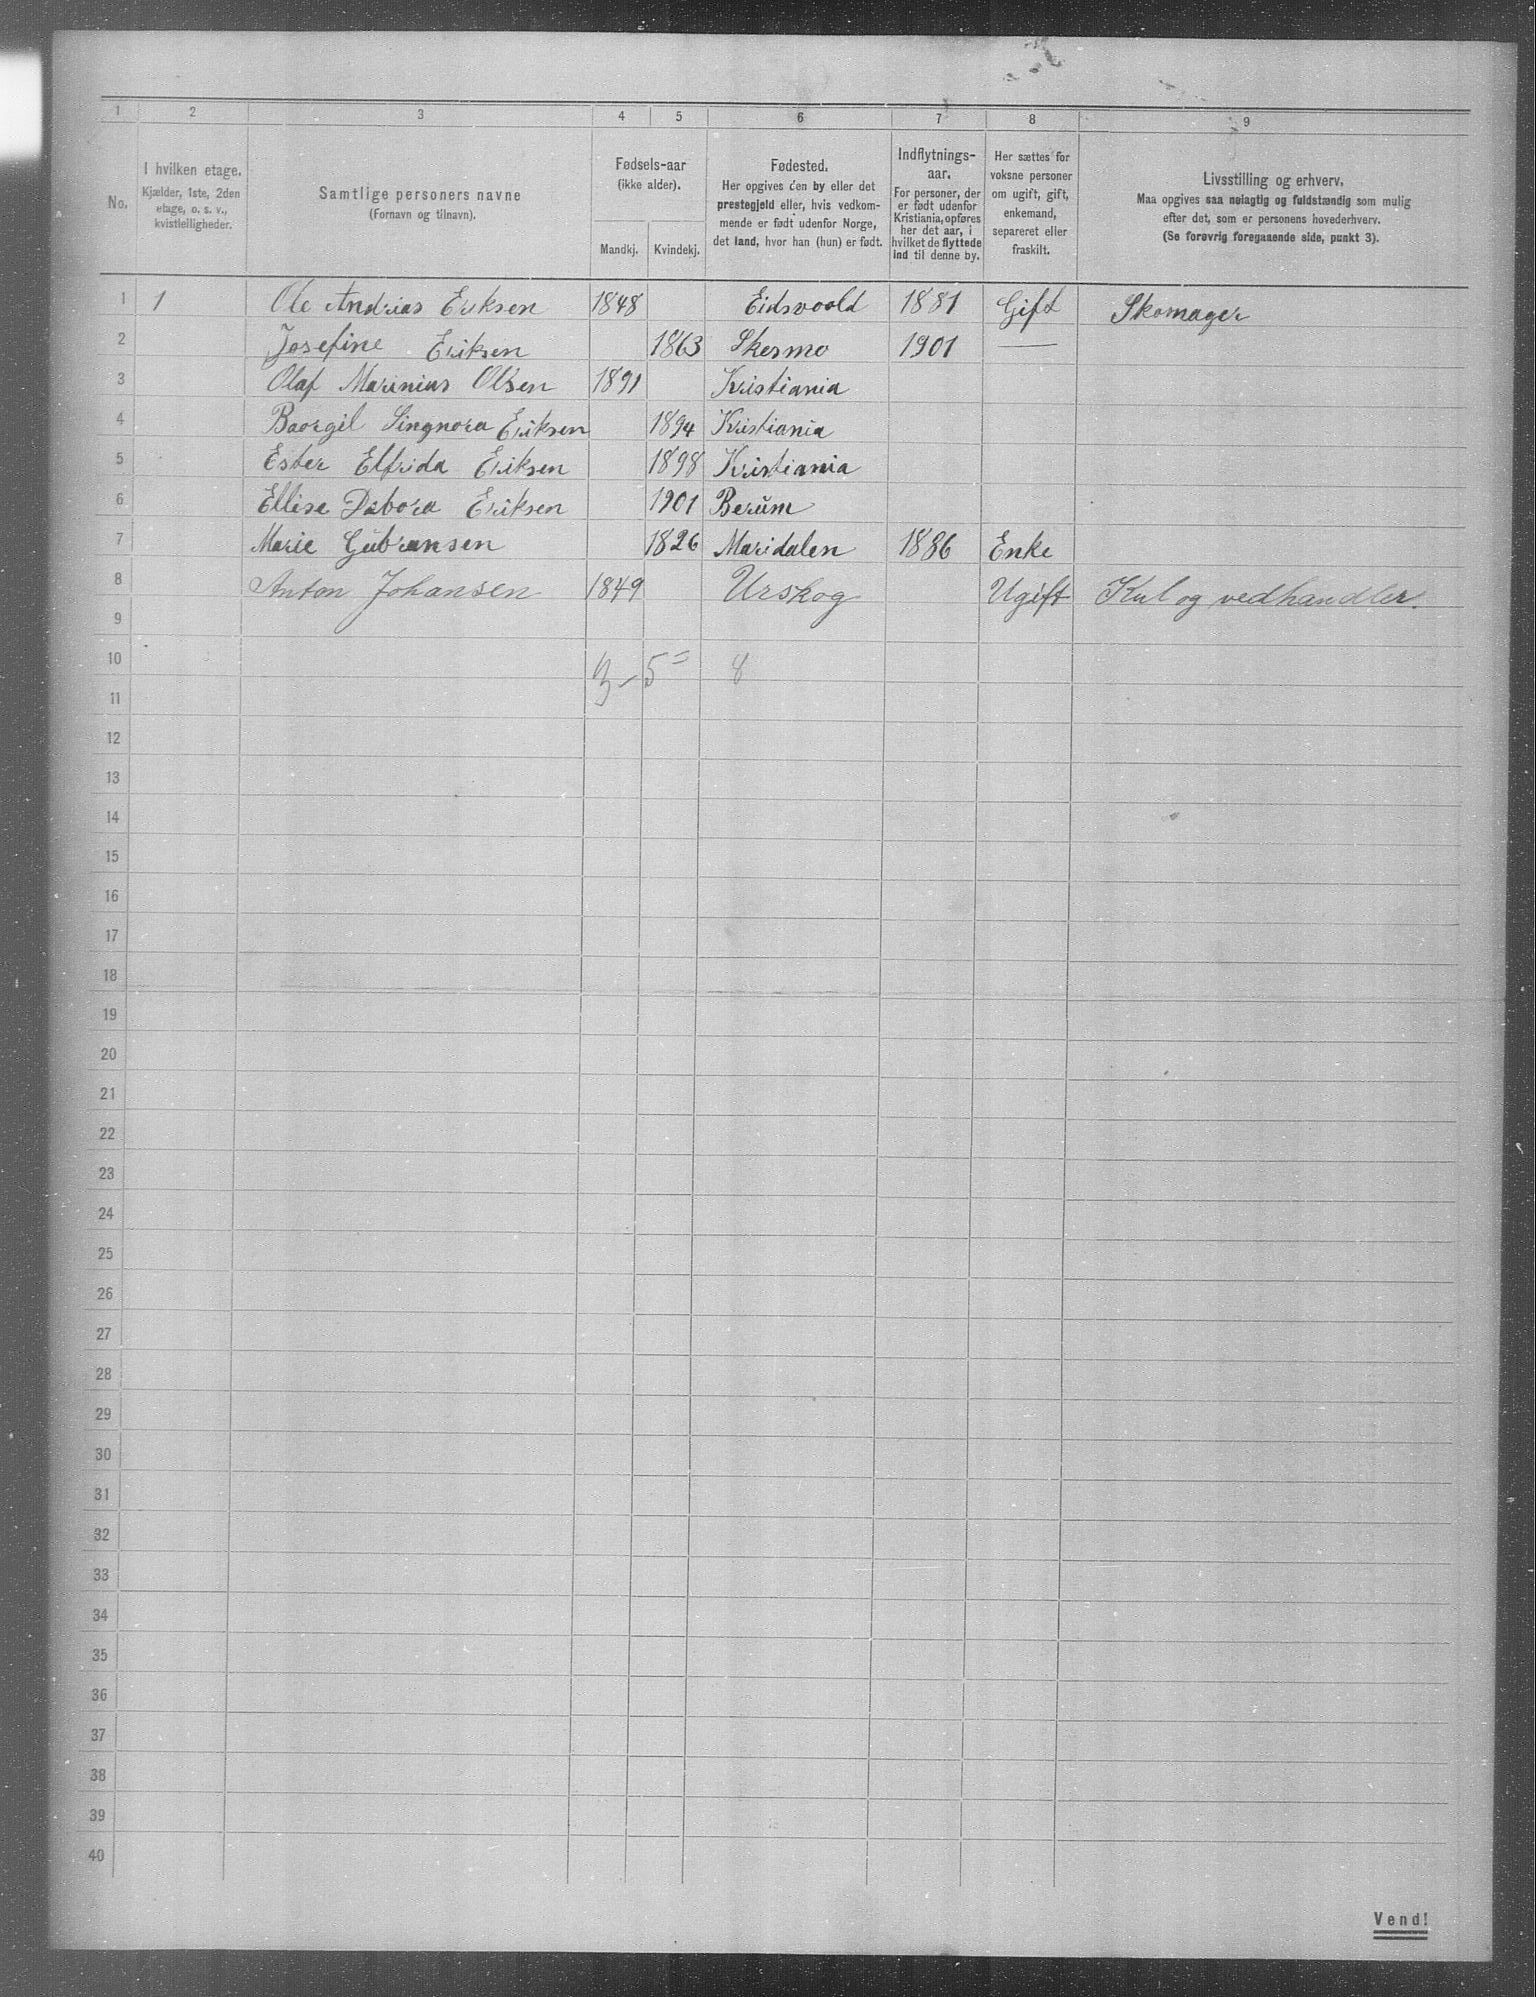 1 2 3 4 5 6 7 8 9
No.
I hvilken etage.
Kjælder, 1ste, 2den
etage, o. s. v.,
kvistleiligheder.
Samtlige personers navne
(Fornavn og tilnavn).
Fødsels-aar
(ikke alder).
Mandkj. Kvindekj.
Fødested.
Her opgives den by eller det
prestegjeld eller, hvis vedkom-
mende er født udenfor Norge,
det land, hvor han (hun) er født.
Indflytnings-
aar.
For personer, der
er født udenfor
Kristiania, opføres
her det aar, i
hvilket de flyttede
ind til denne by.
Her sættes for
voksne personer
om ugift, gift,
enkemand,
separeret eller
fraskilt.
Livsstilling og erhverv.
Maa opgives saa nøiagtig og fuldstændig som mulig
efter det, som er personens hovederhverv.
(Se forøvrig foregaaende side, punkt 3).
1 1 Ole Andrias Eriksen 1848 Eidsvoold 1881 Gift Skomager
2 Josefine Eriksen 1863 Skesmo 1901 —
3 Olaf Marinius Olsen 1891 Kristiania
4 Baorgil Singnora Eriksen 1894 Kristiania
5 Ester Elfrida Eriksen 1898 Kristiania
6 Ellise Debora Eriksen 1901 Berum
7 Marie Gubransen 1826 Maridalen 1886 Enke
8 Anton Johansen 1849 Urskog Ugift Kul og vedhandler.
9
10 3 - 5 = 8
11
12
13
14
15
16
17
18
19
20
21
22
23
24
25
26
27
28
29
30
31
32
33
34
35
36
37
38
39
40
Vend!